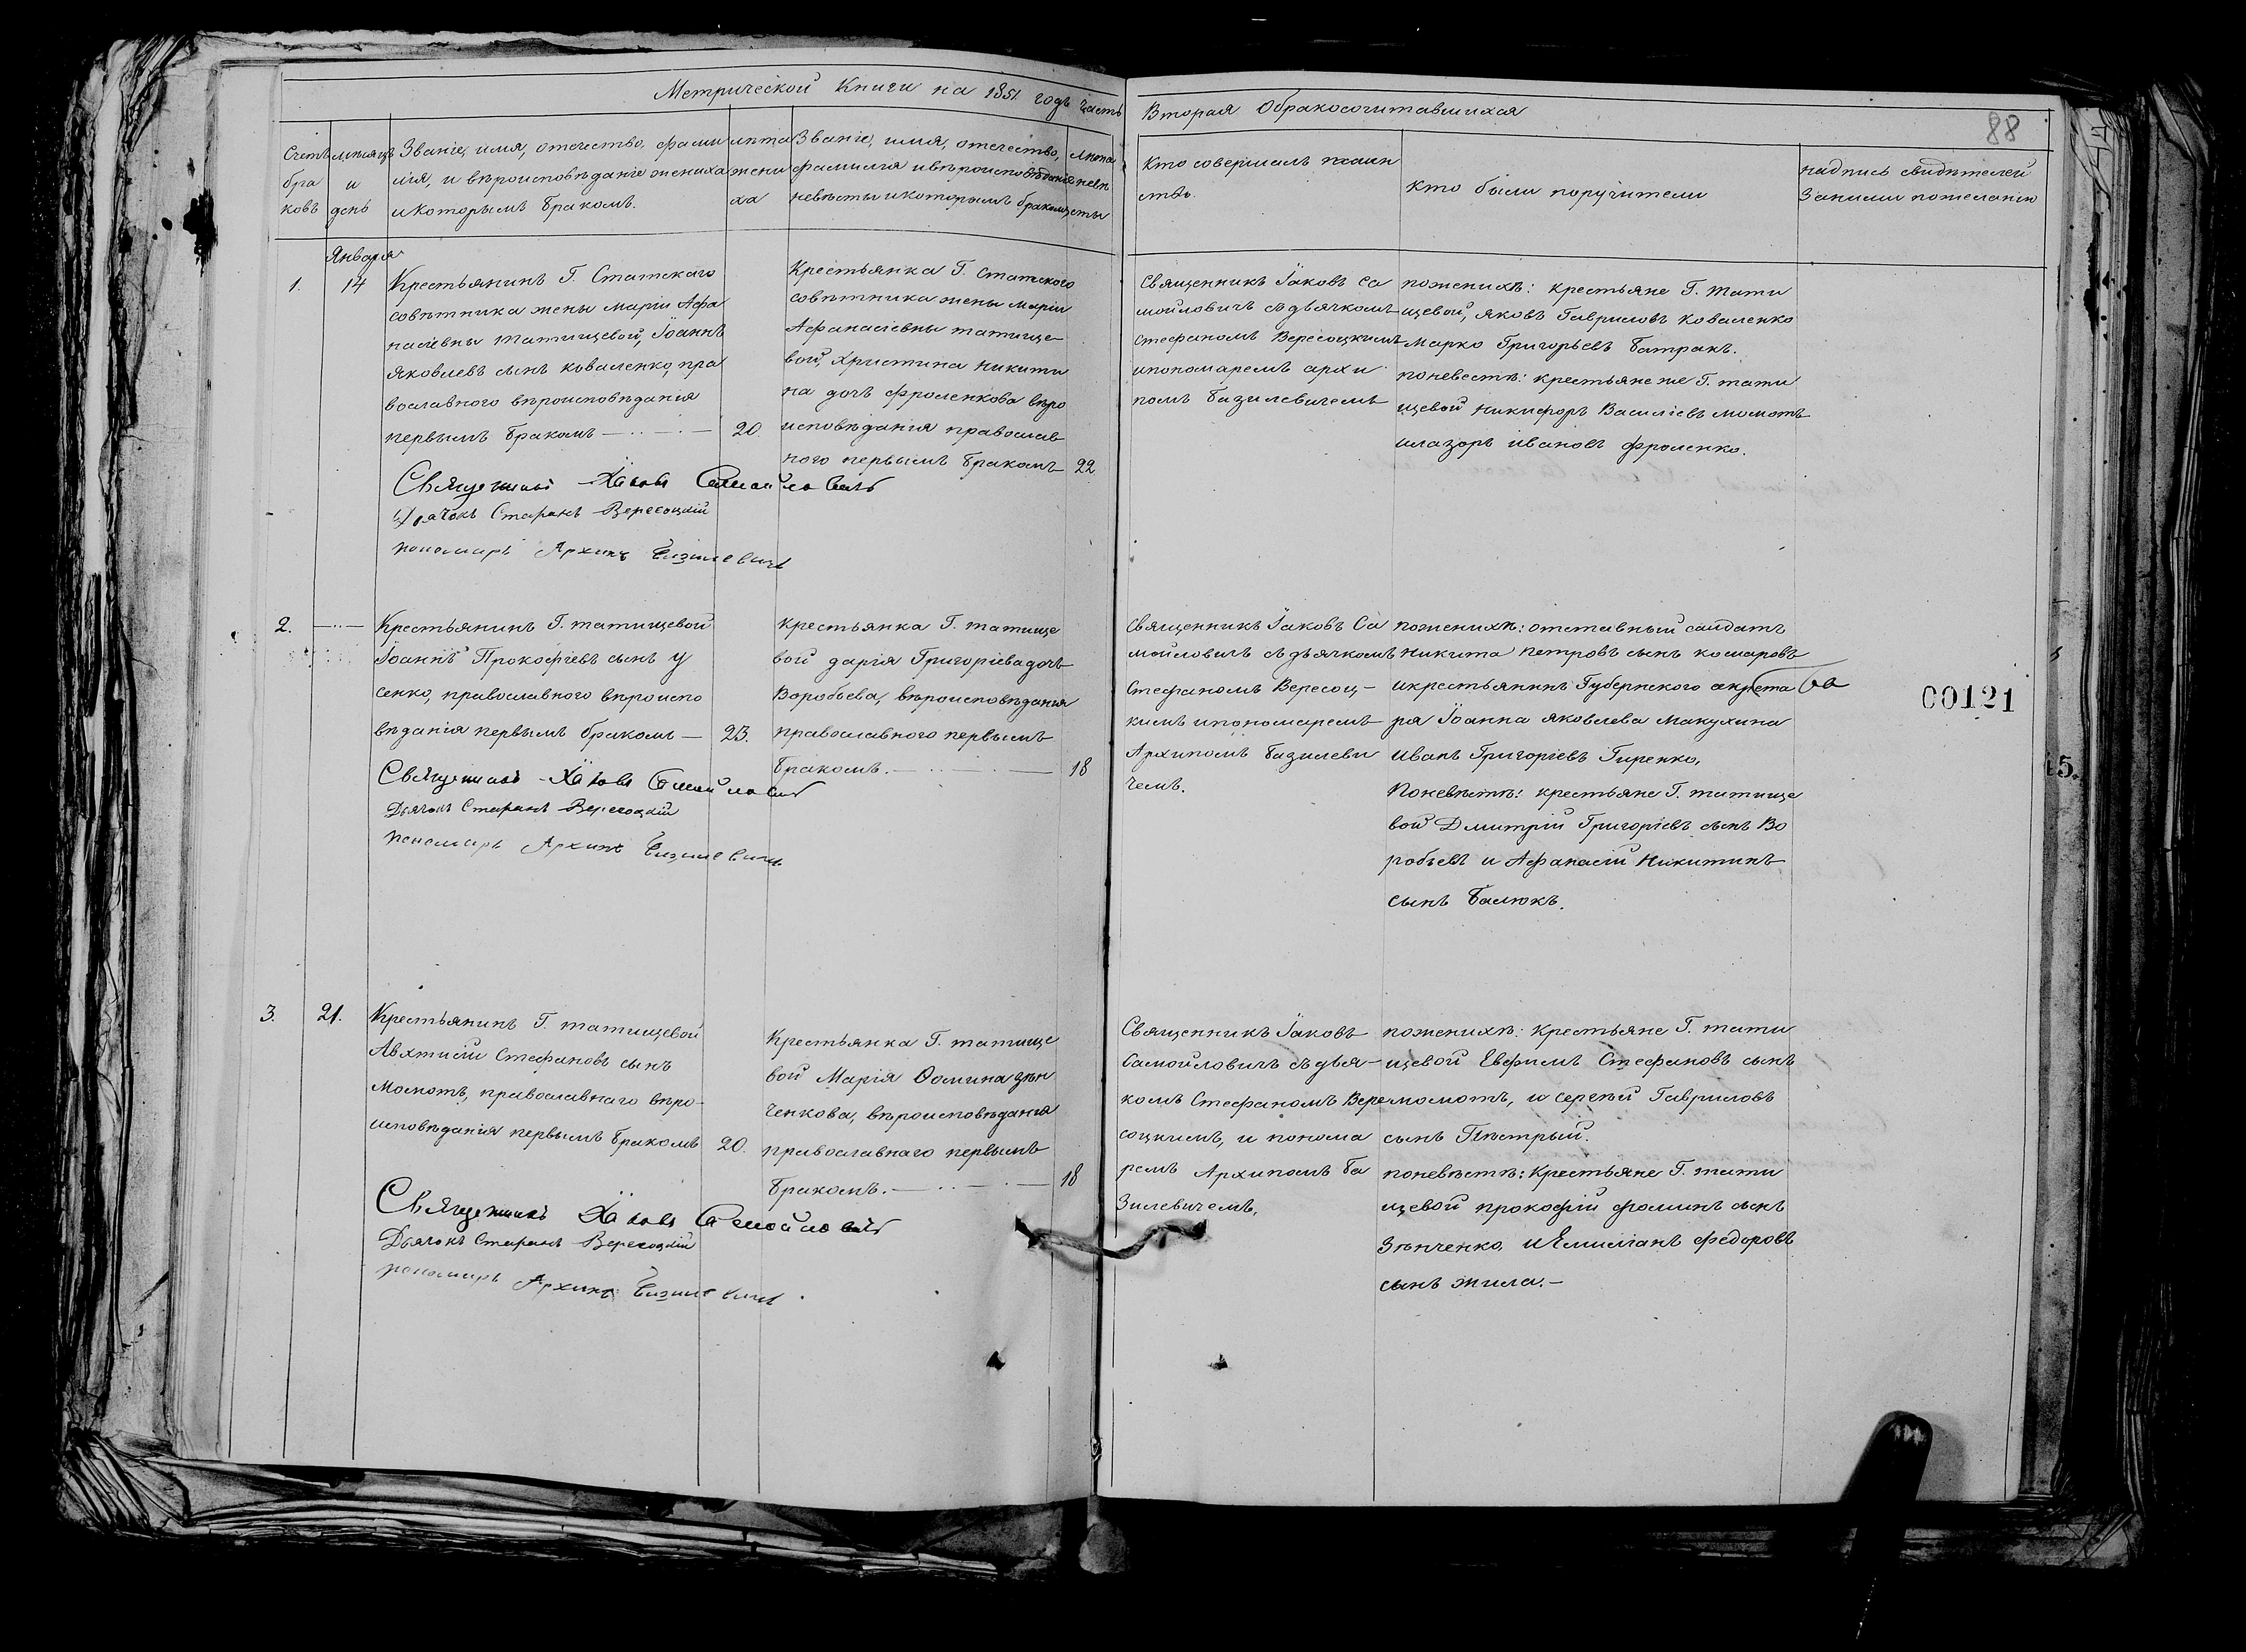 Метрической Книги на 1851 годъ Часть
Вторая Обракосочитавшихся
88
Счетъ
бра
ковъ
месяцъ
и
день
Званіе, имя, отечество, фами
лія, и вѣроисповѣданіе жениха
и которымъ бракомъ.
лѣта
жени
ха
Званіе, имя, отечество,
фамилія и вѣроисповѣданіе
невѣсты и которымъ бракомъ
лѣта
невѣ
сты
Кто совершалъ таин
ство.
Кто были поручители
надпись свидѣтелей
Записи пожеланію
Января
1.
14
Крестьянинъ Г. Статскаго
совѣтника жены Маріи Афа
насіевны Татищевой, Іоаннъ
Яковлевъ сынъ коваленко, пра
вославного вѣроисповѣданія
первымъ бракомъ
20.
Крестьянка Г. Статского
совѣтника жены Маріи
Афанасіевны татище
вой, Христина Никити
на дочь фроленкова вѣро
исповѣданія православ
ного первымъ бракомъ
22
Священникъ Іаковъ Са
мойловичъ съ дьячкомъ
Стефаномъ Вересоцкимъ
и пономаремъ архи
помъ базилевичемъ
поженихѣ: крестьяне Г. Тати
щевой, Яковъ Гавриловъ Коваленко
Марко Григорьевъ батракъ.
поневестѣ: крестьяне же Г. тати
щевой Никифоръ Василіевъ момотъ
и лазорь ивановъ фроленко.
Священникъ Іаковъ Самойловичъ
Дьячокъ Стефанъ Вересоцкій
пономарь Архипъ Базилевичъ
2.
Крестьянинъ Г. татищевой
Іоаннъ Прокофіевъ сынъ У
сенко, православного вѣроиспо
вѣданія первымъ бракомъ
23.
крестьянка Г. татище
вой дарія Григоріева дочь
Воробьева, вѣроисповѣданія
православного первымъ
бракомъ.
18
Священникъ Іаковъ Са
мойловичъ съ дьячкомъ
Стефаномъ Вересоц-
кимъ и пономаремъ
Архипомъ базилеви
чемъ.
поженихѣ: отставный салдатъ
Никита Петровъ сынъ комаровъ
и крестьянинъ Губернского секрета
ря Іоанна яковлева Макухина
иванъ Григоріевъ Гиренко,
Поневѣстѣ: крестьяне Г. татище
вой Дмитрій Григоріевъ сынъ Во
робьевъ и Афанасій Никитинъ
сынъ балюкъ.
00121
Священникъ Іаковъ Самойловичъ
Дьячокъ Стефанъ Вересоцкій
пономарь Архипъ Базилевичъ
3.
21.
Крестьянинъ Г. татищевой
Авхтисій Стефановъ сынъ
Момотъ, православнаго вѣро-
исповѣданія первымъ бракомъ
20.
Крестьянка Г. татище
вой Марія Ѳомина зѣн
ченкова, вѣроисповѣданія
православнаго первымъ
бракомъ.
18
Священникъ Іаковъ
Самойловичъ съ дьяч-
комъ Стефаномъ Вере
соцкимъ, и понома
ремъ Архипомъ ба
зилевичемъ.
поженихѣ: крестьяне Г. тати
щевой Евфимъ Стефановъ сынъ
момотъ, и сергѣй Гавриловъ
сынъ Пѣстрый.
поневѣстѣ: Крестьяне Г. тати
щевой прокофій фоминъ сынъ
Зѣнченко, и Емиліанъ федоровъ
сынъ жила.
Священникъ Іаковъ Самойловичъ
Дьячокъ Стефанъ Вересоцкій
пономарь Архипъ Базилевичъ